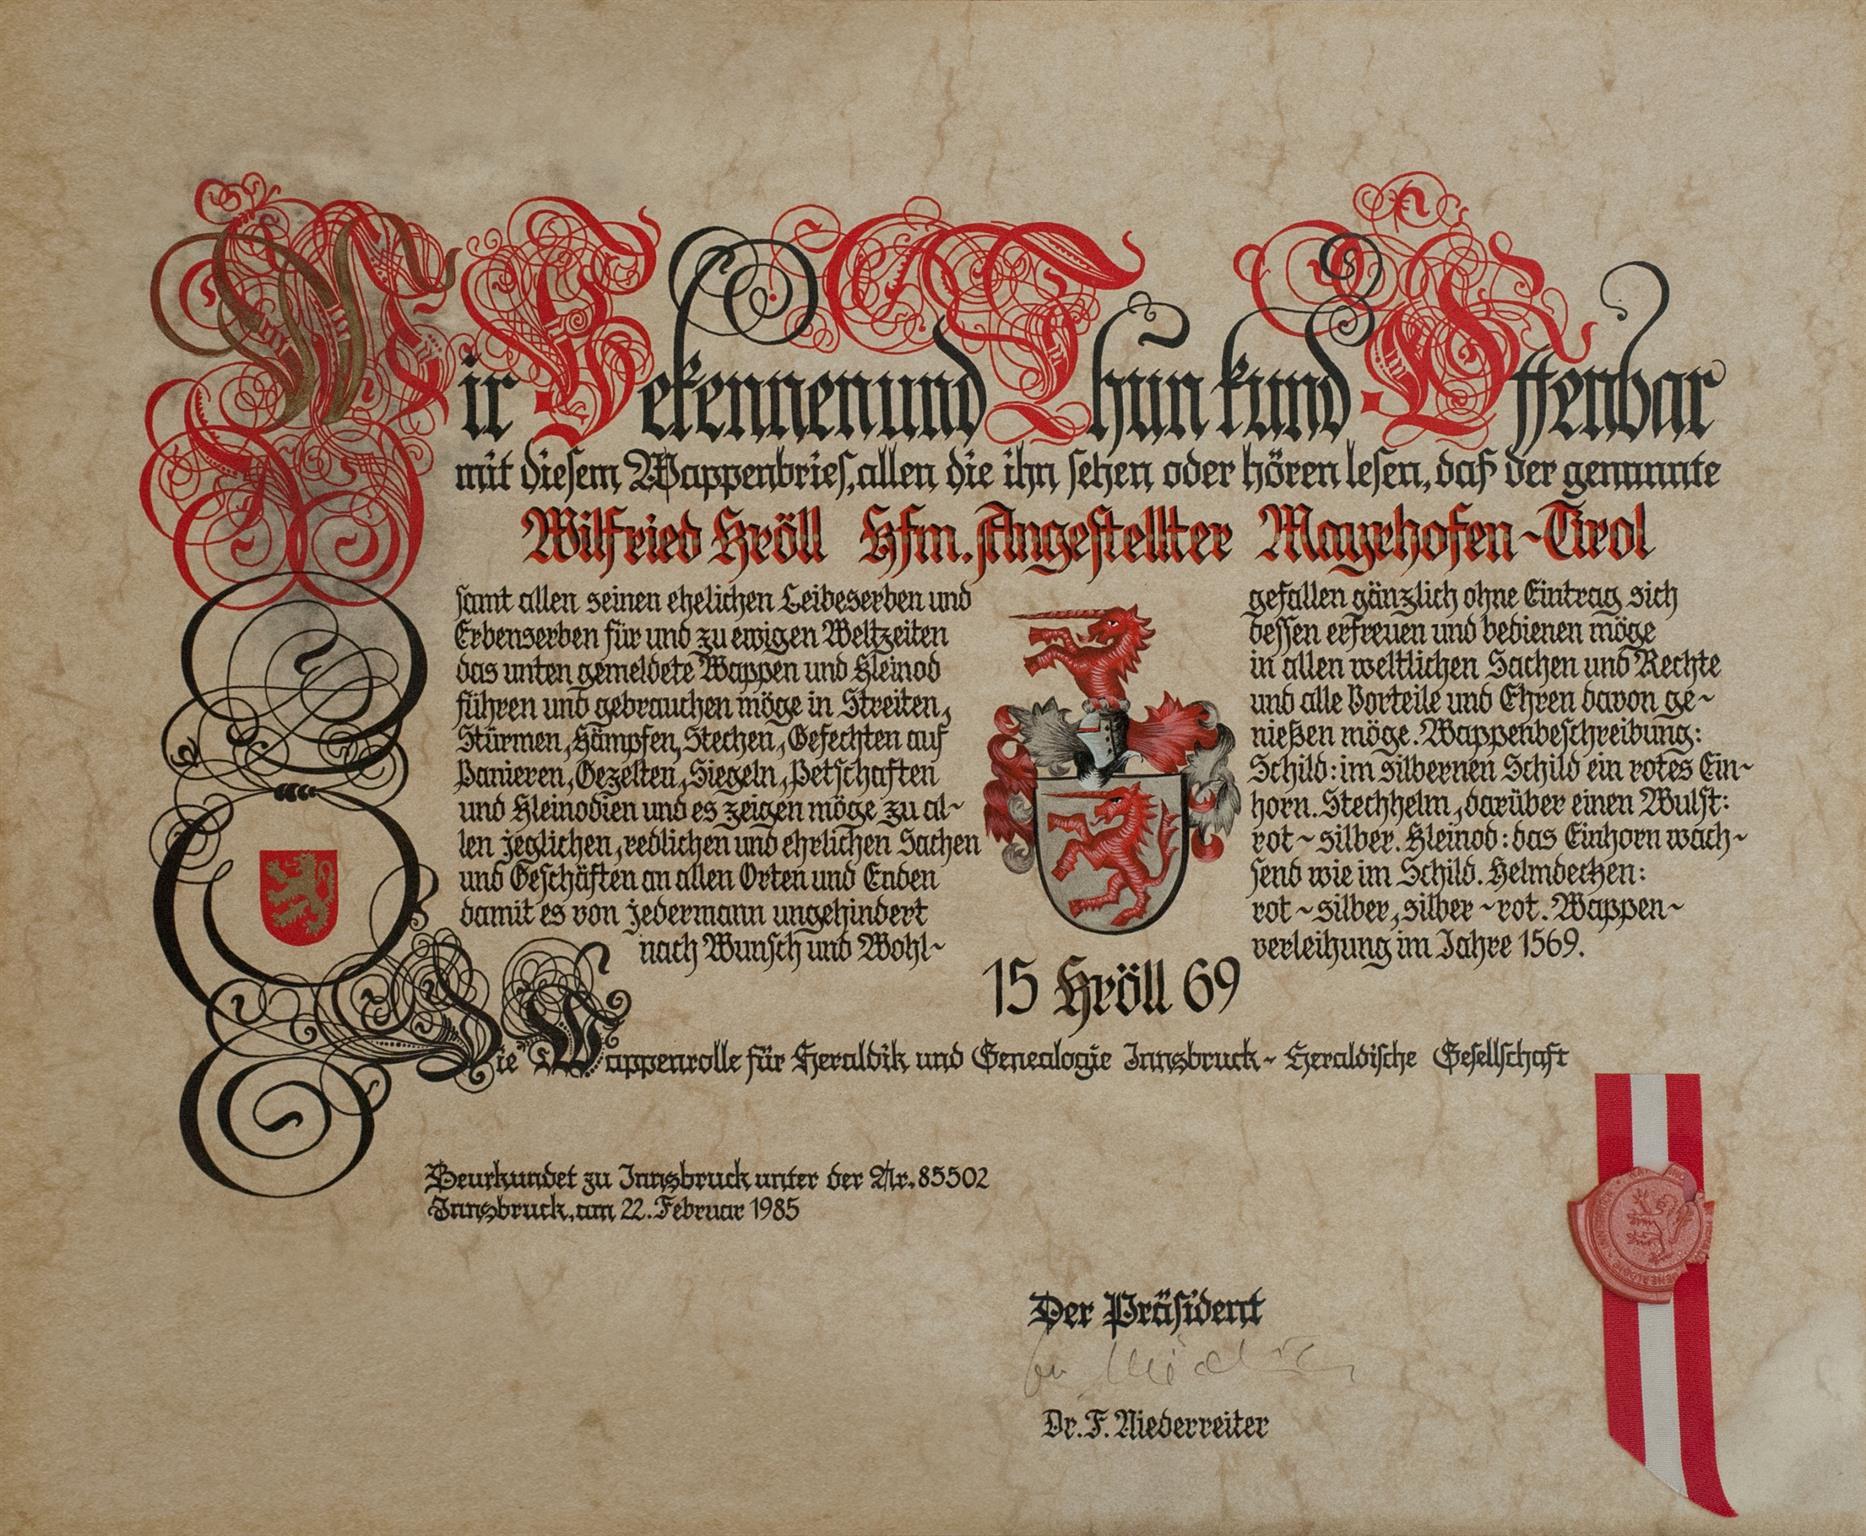 Wir Bekennen und Thun kund Offenbar
mit diesem Wappenbrief, allen die ihn sehen oder hören lesen, daß der genannte
Wilfried Kröll Kfm. Angestellter Mayrhofen~Tirol
samt allen seinen ehelichen Leibeserben und
Erbenserben für und zu ewigen Weltzeiten
das unten gemeldete Wappen und Kleinod
führen und gebrauchen möge in Streiten,
Stürmen, Kämpfen, Stechen, Gefechten auf
Panieren, Gezelten, Siegeln, Petschaften
und Kleinodien und es zeigen möge zu al~
len jeglichen, redlichen und ehrlichen Sachen
und Geschäften an allen Orten und Enden
damit es von jedermann ungehindert
nach Wunsch und Wohl~
gefallen gänzlich ohne Eintrag sich
dessen erfreuen und bedienen möge
in allen weltlichen Sachen und Rechte
und alle Vorteile und Ehren davon ge~
nießen möge. Wappenbeschreibung:
Schild: im silbernen Schild ein rotes Ein~
horn. Stechhelm, darüber einen Wulst:
rot~silber. Kleinod: das Einhorn wach~
send wie im Schild. Helmdecken:
rot~silber, silber~rot. Wappen~
verleihung im Jahre 1569.
15 Kröll 69
Die Wappenrolle für Heraldik und Genealogie Innsbruck~Heraldische Gesellschaft
Beurkundet zu Innsbruck unter der Nr. 85502
Innsbruck, am 22. Februar 1985
Der Präsident
Dr. F. Niederreiter